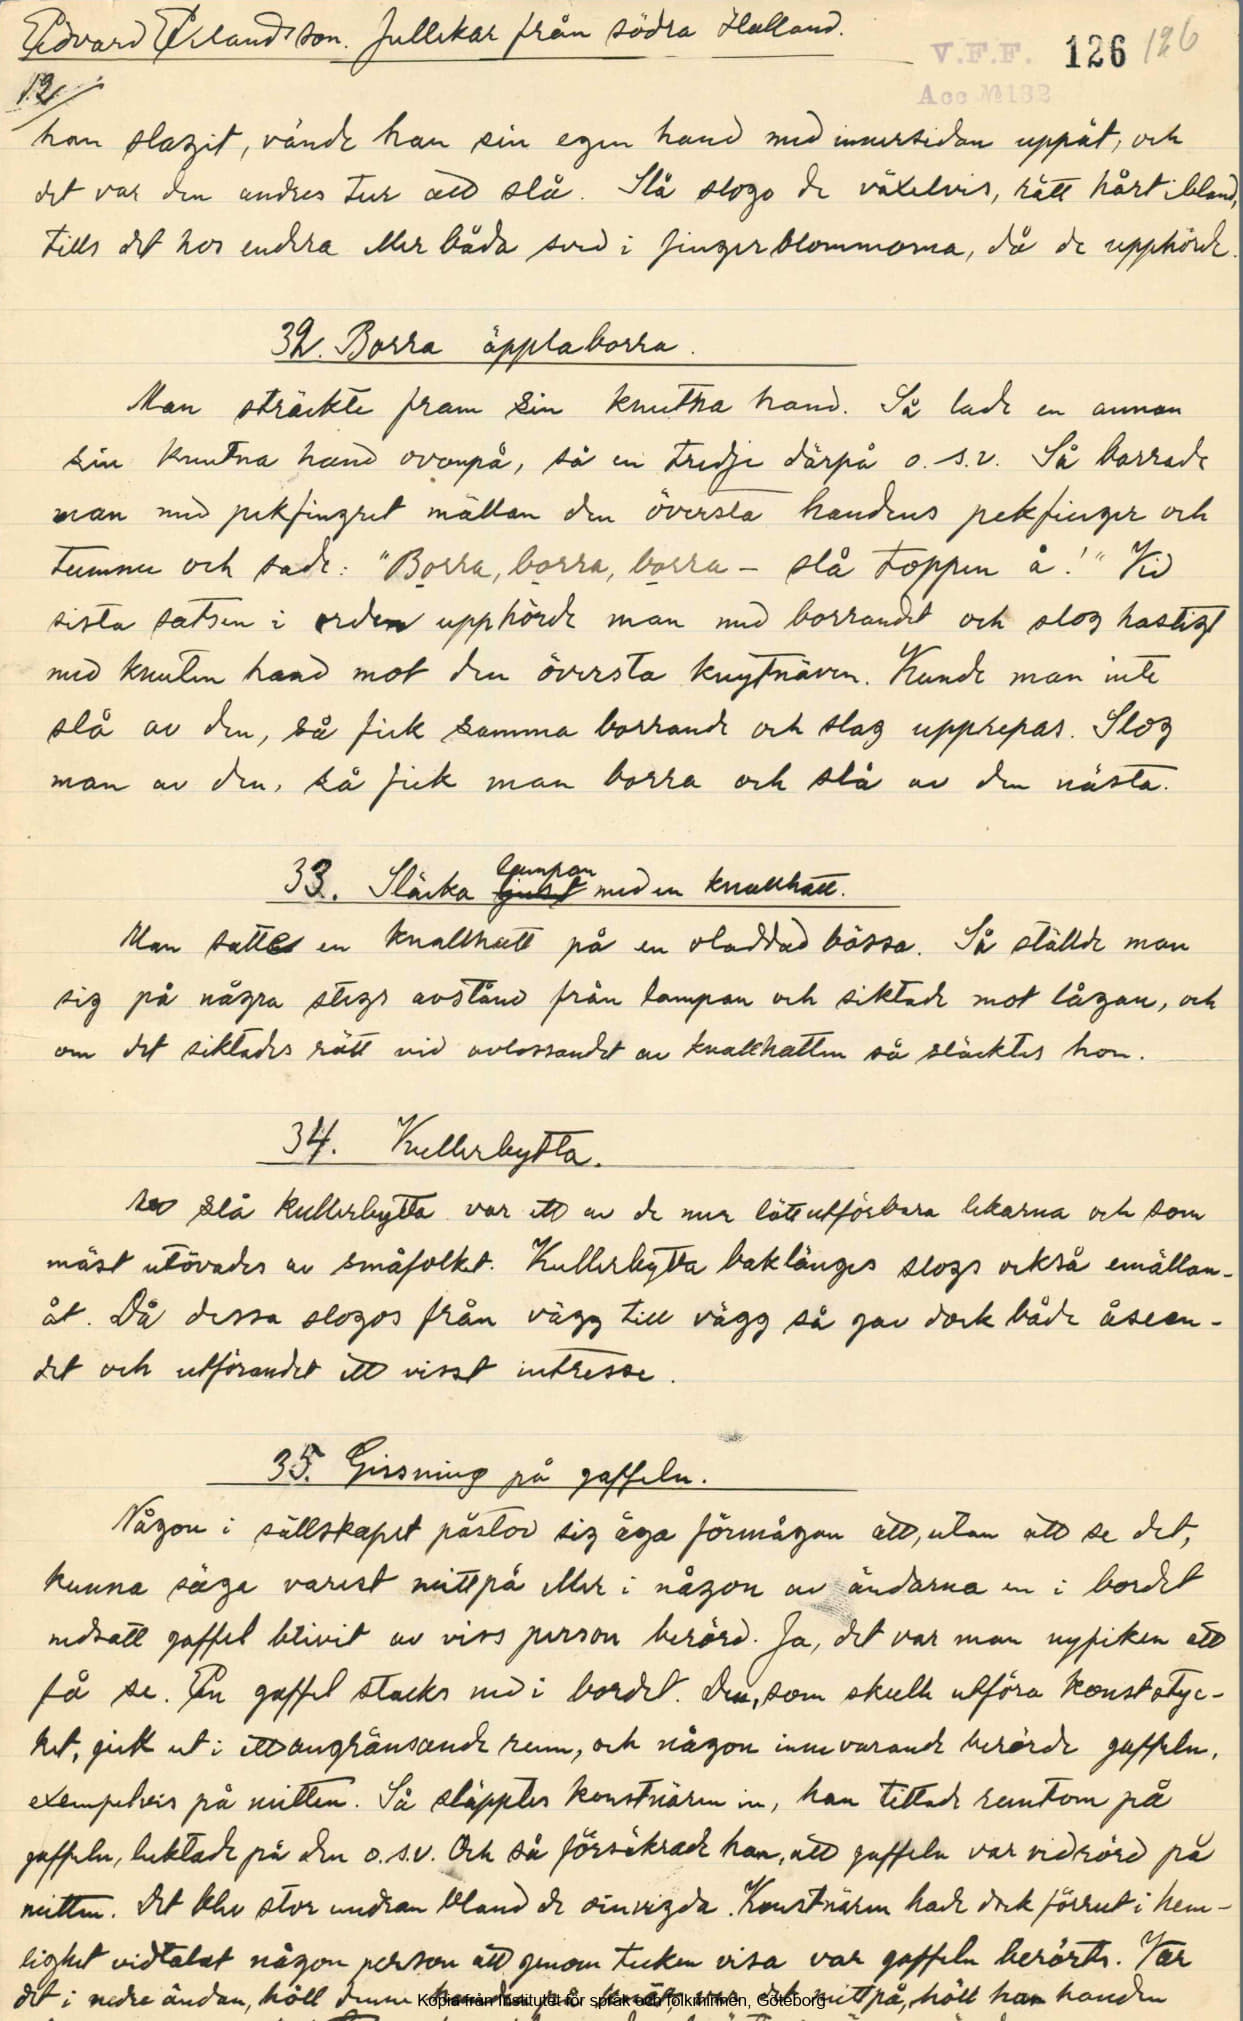 Edvard Erlandsson. Jullekar från södra Halland.
V.F.F. 126 126
Acc № 132
12/
han slagit, vände han sin egen hand med innersidan uppåt, och
det var den andres tur att slå. Slå slogo de växelvis, rätt hårt ibland,
tills det hos endera eller båda sved i fingerblommorna, då de upphörde.
32. Borra äpplaborra.
Man sträckte fram sin knutna hand. Så lade en annan
sin knutna hand ovanpå, så en tredje därpå o.s.v. Så borrade
man med pekfingret mällan den översta handens pekfinger och
tumme och sade: "Borra, borra, borra – slå toppen å!" Vid
sista satsen i orden upphörde man med borrandet och slog hastigt
med knuten hand mot den översta knytnäven. Kunde man inte
slå av den, så fick samma borrande och slag upprepas. Slog
man av den, så fick man borra och slå av den nästa.
33. Släcka lampan med en knallhatt.
Man satte en knallhatt på en oladdad bössa. Så ställde man
sig på några stegs avstånd från lampan och siktade mot lågan, och
om det siktades rätt vid avlossandet av knallhatten så släcktes hon.
34. Kullerbytta.
slå kullerbytta var ett av de mer lättutförbara lekarna och som
mäst utövades av småfolket. Kullerbytta baklänges slogs också emällan-
åt. Då dessa slogos från vägg till vägg så gav dock både åseen-
det och utförandet ett visst intresse.
35. Gissning på gaffeln.
Någon i sällskapet påstod sig äga förmågan att, utan att se det,
kunna säga varest mittpå eller i någon av ändarna en i bordet
nedsatt gaffel blivit av viss person berörd. Ja, det var man nyfiken att
få se. En gaffel stacks ned i bordet. Den, som skulle utföra konststyc-
ket, gick ut i ett angränsande rum, och någon innevarande berörde gaffeln,
exempelvis på mitten. Så släpptes konstnären in, han tittade runtom på
gaffeln, luktade på den o.s.v. Och så försäkrade han, att gaffeln var vidrörd på
mitten. Det blev stor undran bland de oinvigda. Konstnären hade dock förrut i hem-
lighet vidtalat någon person att genom tecken visa var gaffeln berörts. Var
det i nedre ändan, höll denne handen på knät, var det mittpå, höll han handen
Kopia från Institutet för språk och folkminnen, Göteborg